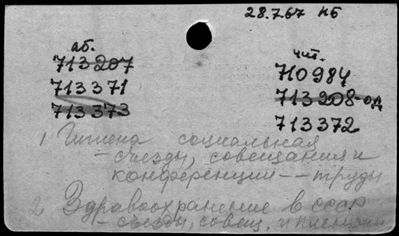 28.7.67 нб
аб.
713207
713371
713373
чит.
710984
713208-од
713372
1 Гигиена социальная
- съезды, совещания и
конференции -- труды
2 Здравоохранение в СССР
- съезды, совещ. и